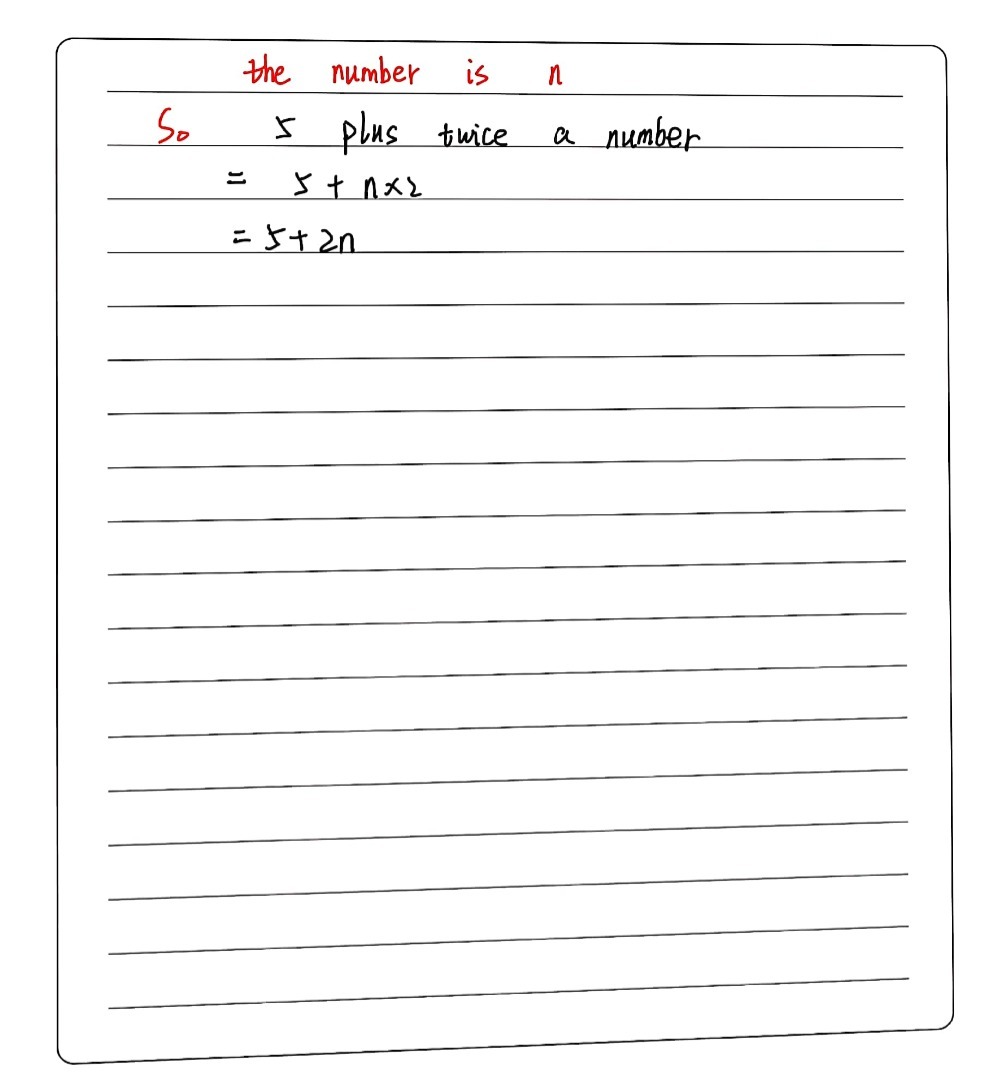 the number is n
So 5 plus twice a number
= 5 + n×2
= 5+ 2n